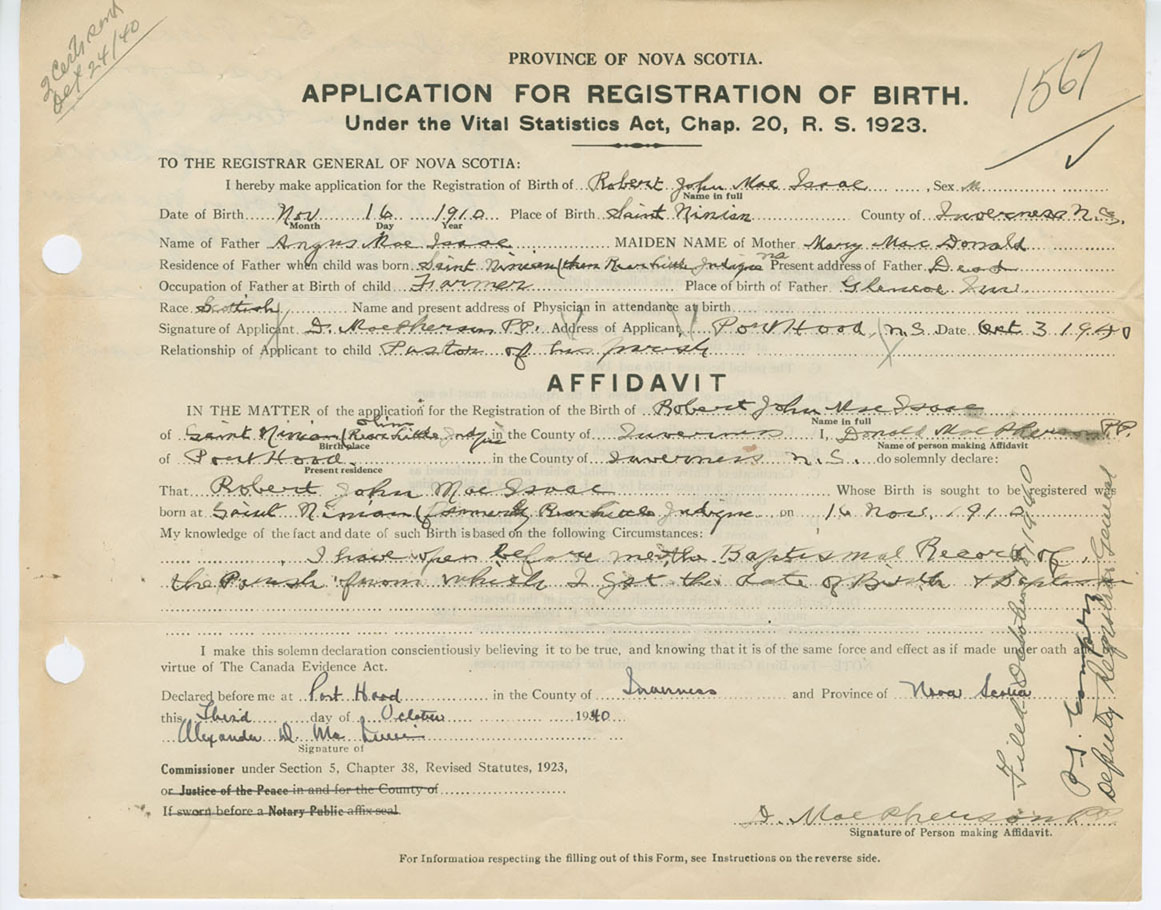 2 Certs Send
Oct 24/40
1567
PROVINCE OF NOVA SCOTIA.
APPLICATION FOR REGISTRATION OF BIRTH.
Under the Vital Statistics Act, Chap. 20, R. S. 1923.
TO THE REGISTRAR GENERAL OF NOVA SCOTIA:
I hereby make application for the Registration of Birth of Robert John Mac Isaac, Sex M
Name in full
Date of Birth Nov 16 1910 Place of Birth Saint Ninian County of Inverness N.S.
Month Day Year
Name of Father Angus Mac Isaac MAIDEN NAME of Mother Mary Mac Donald
Residence of Father when child was born Saint Ninian (then Rear Little Judique Present address of Father Dead
Occupation of Father at Birth of child Farmer Place of birth of Father Glencoe Inv.
Race Scottish Name and present address of Physician in attendance at birth
Signature of Applicant D. MacPherson P.P. Address of Applicant Port Hood N.S. Date Oct 3 1940
Relationship of Applicant to child Pastor of his parish
AFFIDAVIT
IN THE MATTER of the application for the Registration of the Birth of Robert John Mac Isaac
Name in full
of Saint Ninian (Rear Little Judique in the County of Inverness I, Donald MacPherson P.P.
Birthplace Name of person making Affidavit
of Port Hood in the County of Inverness N.S. do solemnly declare:
Present residence
That Robert John Mac Isaac Whose Birth is sought to be registered was
born at Saint Ninian (formerly Rear Little Judique on 16 Nov. 1910
My knowledge of the fact and date of such Birth is based on the following Circumstances:
I have open before me the Baptismal Record of
the Parish from which I got the date of Birth & Baptism
I make this solemn declaration conscientiously believing it to be true, and knowing that it is of the same force and effect as if made under oath
virtue of The Canada Evidence Act.
Declared before me at Port Hood in the County of Inverness and Province of Nova Scotia
this Third day of October 1940
Alexander D. Mac
Signature of
Commissioner under Section 5, Chapter 38, Revised Statutes, 1923,
or Justice of the Peace in and for the County of
If sworn before a Notary Public affix seal
D. MacPherson P.P.
Signature of Person making Affidavit.
For Information respecting the filling out of this Form, see Instructions on the reverse side.
Filed October 8, 1940
Deputy Registrar General